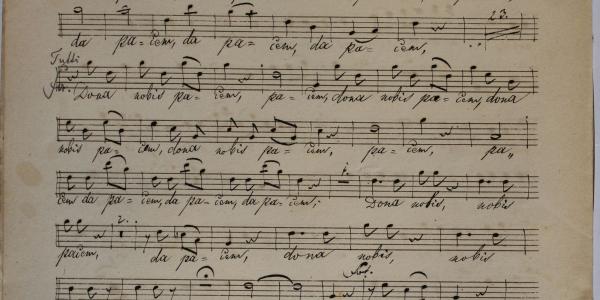 23.
da pa= cem, da pa= cem, da pa= cem,
Tutti
Dona nobis pa= cem, pa= cem, dona nobis pa= cem, dona
nobis pa= cem, dona nobis pa= cem, pa= cem, pa„
cem da pa= cem, da pa= cem, da pa= cem; Dona nobis, nobis
2.
pacem, da pa= cem, dona nobis, nobis